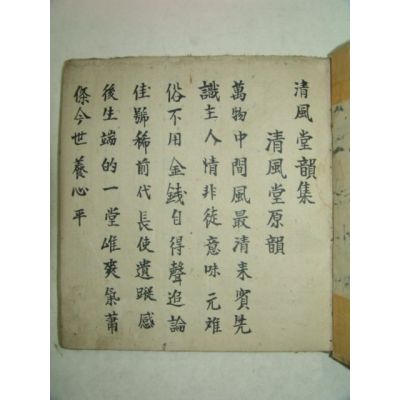 清風堂韻集
清風堂原韻
萬物中間風最清来賓先
識主人情非徒意味元难
俗不用金錢自得聲追論
佳號稀前代長使遺蹤感
後生端的一堂雄爽氣蕭
條今世養心平